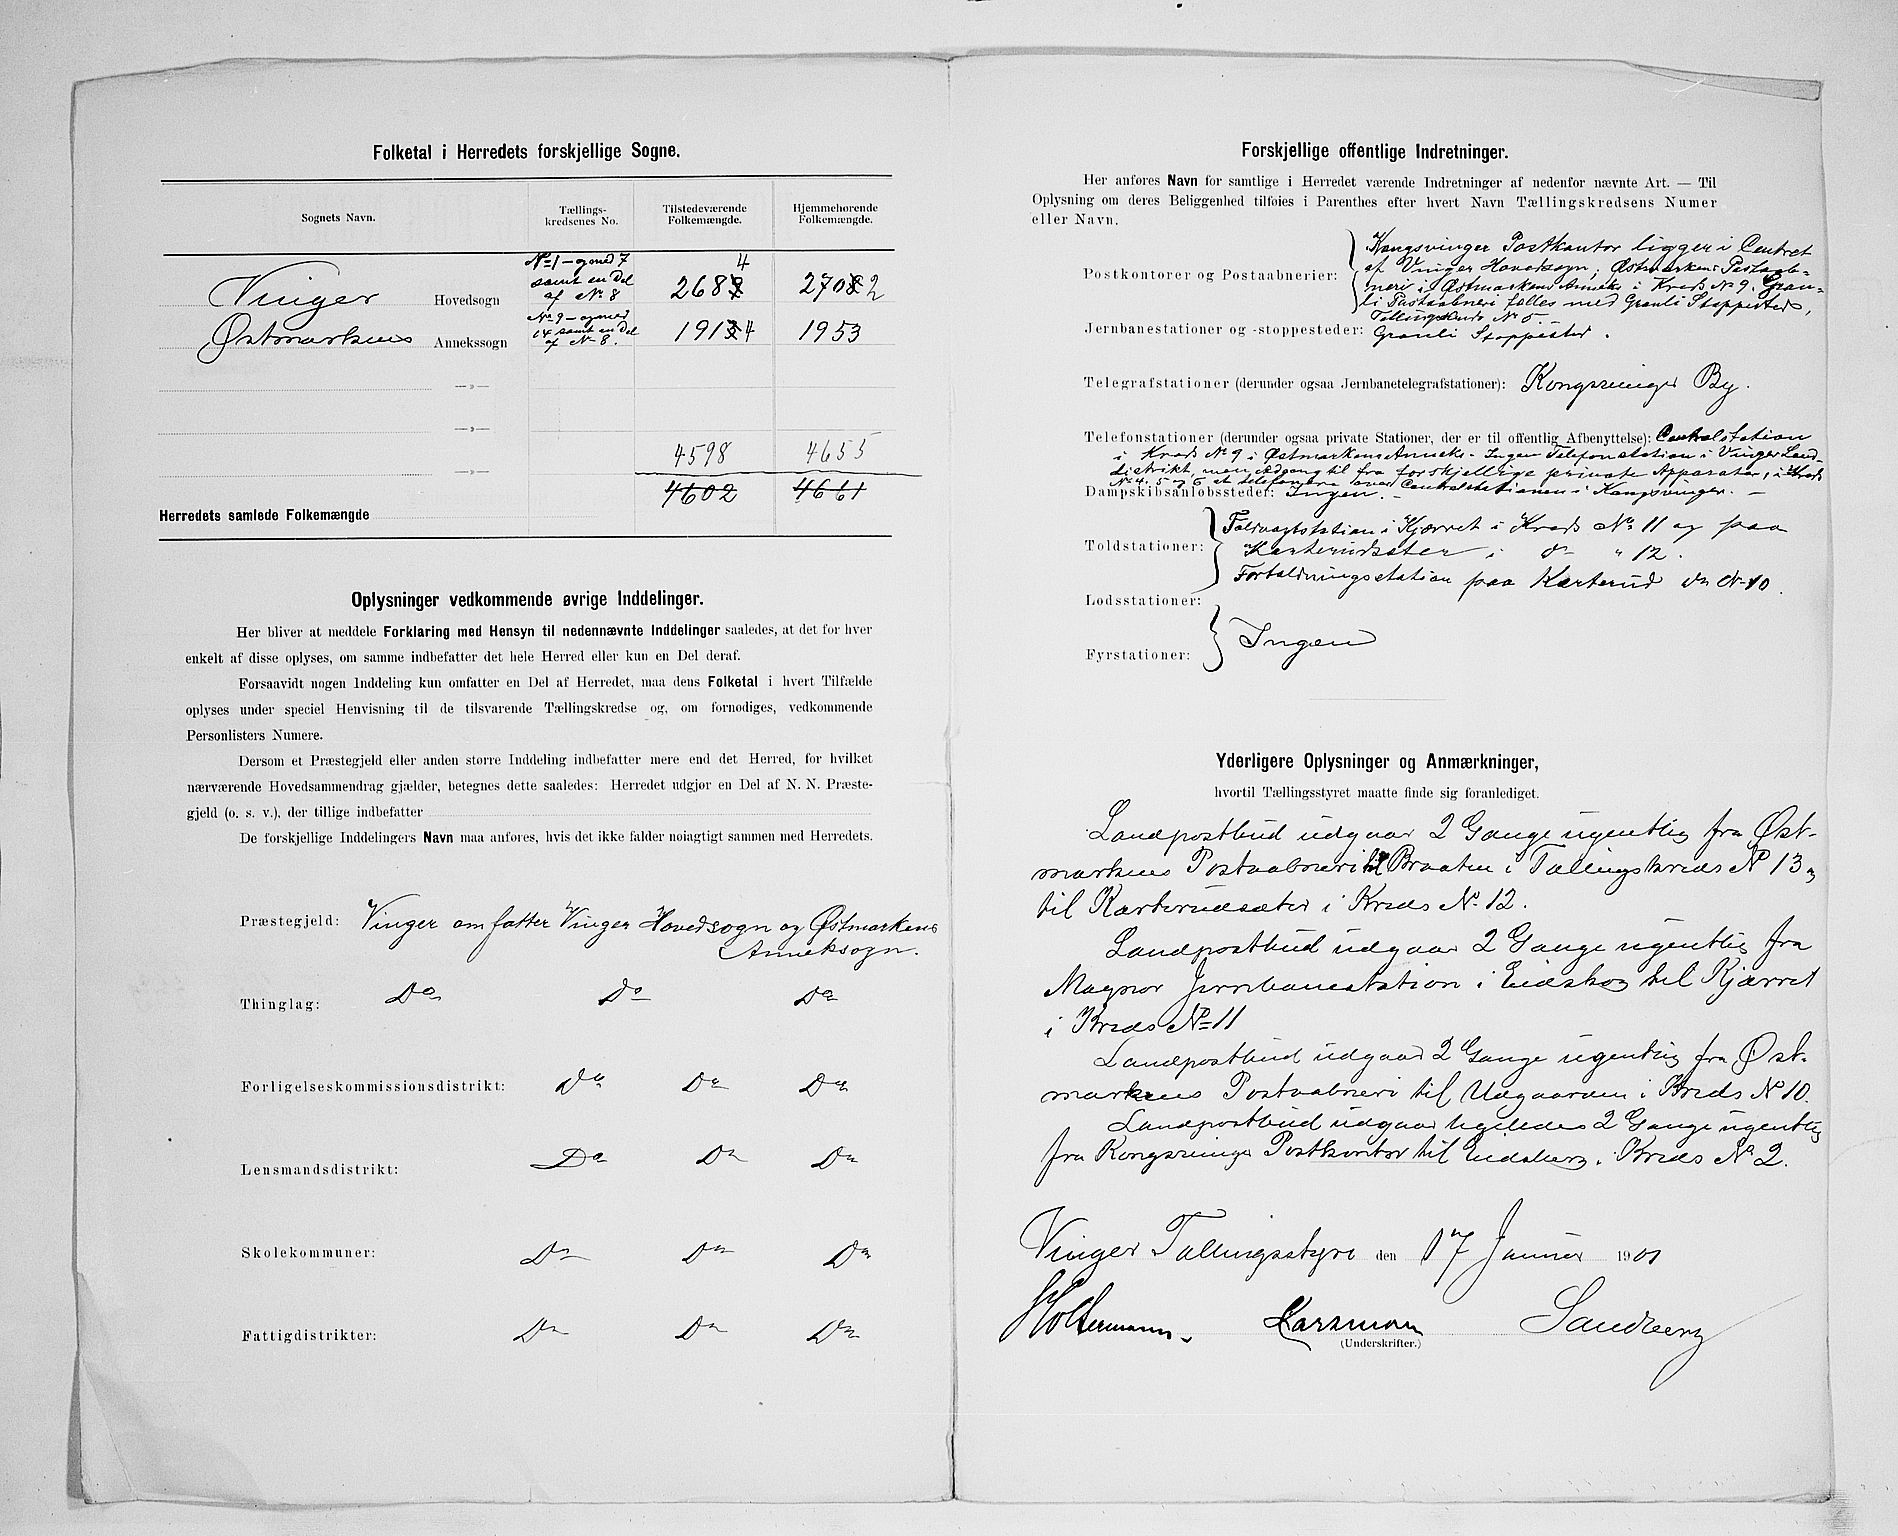 Folketal i Herredets forskjellige Sogne.
Sognets Navn.
Tællings-
kredsenes No.
Tilstedeværende
Folkemængde.
Hjemmehørende
Folkemængde.
Vinger Hovedsogn
No 1 – og med 7
samt en Del
af No 8
2684
2702
Østmarkens Annekssogn
No 9 – og med
14 samt en Del
af No 8.
1914
1953
—»—
—»—
4598 4655
—»—
4602 4661
Herredets samlede Folkemængde
Oplysninger vedkommende øvrige Inddelinger.
Her bliver at meddele Forklaring med Hensyn til nedennævnte Inddelinger saaledes, at det for hver
enkelt af disse oplyses, om samme indbefatter det hele Herred eller kun en Del deraf.
Forsaavidt nogen Inddeling kun omfatter en Del af Herredet, maa dens Folketal i hvert Tilfælde
oplyses under speciel Henvisning til de tilsvarende Tællingskredse og, om fornødiges, vedkommende
Personlisters Numere.
Dersom et Præstegjeld eller anden større Inddeling indbefatter mere end det Herred, for hvilket
nærværende Hovedsammendrag gjælder, betegnes dette saaledes: Herredet udgjør en Del af N. N. Præste-
gjeld (o. s. v.), der tillige indbefatter
De forskjellige Inddelingers Navn maa anføres, hvis det ikke falder nøiagtigt sammen med Herredets.
Præstegjeld: Vinger omfatter Vinger Hovedsogn og Østmarkens
Annekssogn.
Thinglag: Do Do Do
Forligelseskommissionsdistrikt: Do Do Do
Lensmandsdistrikt: Do Do Do
Skolekommuner: Do Do Do
Fattigdistrikter: Do Do Do
Forskjellige offentlige Indretninger.
Her anføres Navn for samtlige i Herredet værende Indretninger af nedenfor nævnte Art. — Til
Oplysning om deres Beliggenhed tilføies i Parenthes efter hvert Navn Tællingskredsens Numer
eller Navn.
Postkontorer og Postaabnerier:
Kongsvinger Postkontor ligger i Centret
af Vinger Hovedsogn; Østmarkens Postaab-
neri i Østmarkens Anneks i Kreds No 9. Gran-
li Postaabneri falles med Granli Stoppested,
Tællingskreds No 5
Jernbanestationer og -stoppesteder: Granli Stoppested.
Telegrafstationer (derunder ogsaa Jernbanetelegrafstationer): Kongsvinger By.
Telefonstationer (derunder ogsaa private Stationer, der er til offentlig Afbenyttelse): Centralstation
i Kreds No 9 i Østmarkens Anneks. Ingen Telefonstation i Vinger Land-
distrikt, men Adgang til fra forskjellige private Apparater, i Kreds
No 4, 5 og 6 at telefonere over Centralstationen i Kongsvinger. –
Dampskibsanløbssteder: Ingen. –
Toldstationer:
Toldvagtstation i Kjærret i Kreds No 11 og paa
Karterudsæter i do " 12.
Fortoldningsstation paa Karterud do No 10.
Lodsstationer:
Fyrstationer:
Ingen
Yderligere Oplysninger og Anmærkninger,
hvortil Tællingsstyret maatte finde sig foranlediget.
Landpostbud udgaar 2 Gange ugentlig fra Øst-
markens Postaabneri til Braaten i Tællingskreds No 13 og
til Karterudsæter i Kreds No 12.
Landpostbud udgaar 2 Gange ugentlig fra
Magnor Jernbanestation i Eidskog til Kjærret
i Kreds No 11
Landpostbud udgaar 2 Gange ugentlig fra Øst-
markens Postaabneri til Udgaarden i Kreds No 10.
Landpostbud udgaar ligeledes 2 Gange ugentlig
fra Kongsvinger Postkontor til Eidsberg i Kreds No 2.
Vinger Tællingsstyre den 17 Januar 1901
Holtermann. Larsmon Sandberg
(Underskrifter.)